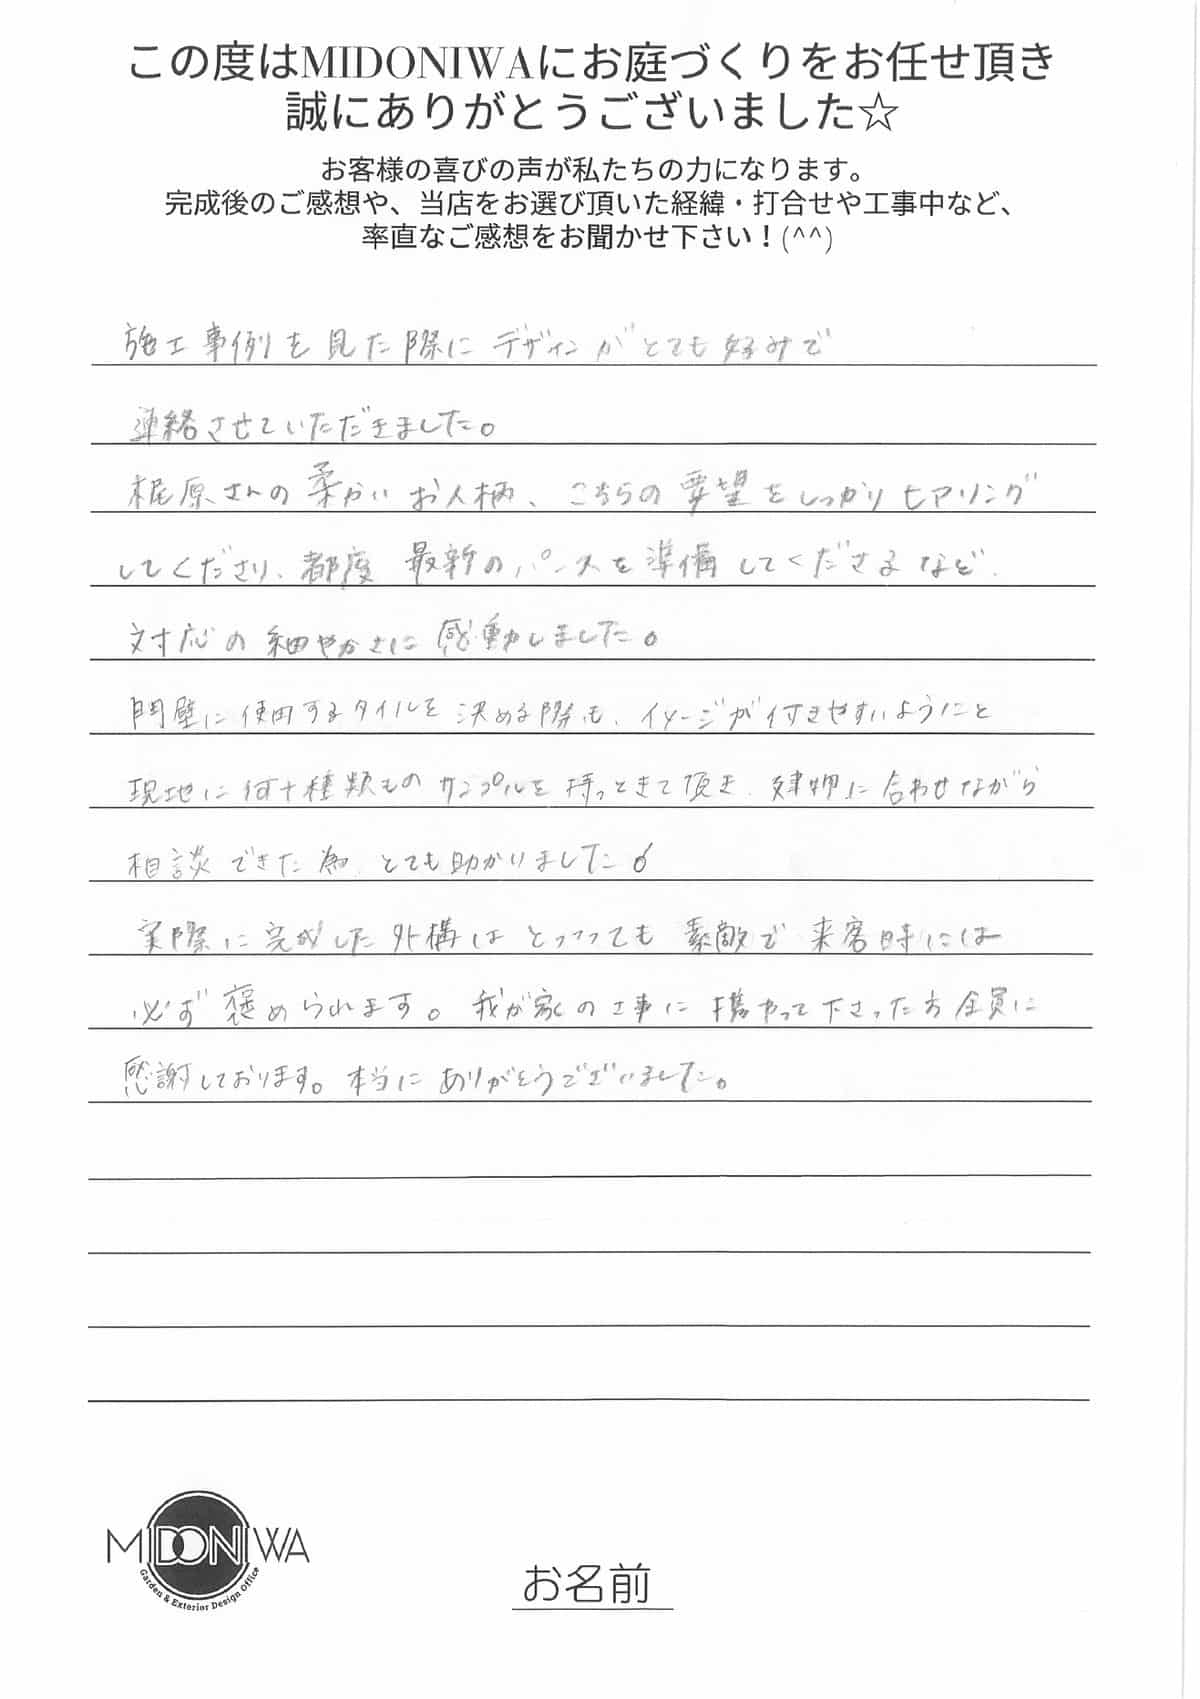 この度はMIDONIWAにお庭づくりをお任せ頂き
誠にありがとうございました☆
お客様の喜びの声が私たちの力になります。
完成後のご感想や、当店をお選び頂いた経緯・打合せや工事中など、
率直なご感想をお聞かせ下さい！(^^)
施工事例を見た際にデザインがとても好みで
連絡させていただきました。
梶原さんの柔かいお人柄、こちらの要望をしっかりヒアリング
してくださり、都度 最新のパースを準備してくださるなど、
対応の細やかさに感動しました。
門壁に使用するタイルを決める際も、イメージが付きやすいようにと
現地に何十種類ものサンプルを持ってきて頂き、建物に合わせながら
相談できた為、とても助かりました。
実際に完成した外構はとっっっても素敵で来客時には
必ず褒められます。我が家の工事に携わって下さった方全員に
感謝しております。本当にありがとうございました。
MIDONIWA
Garden & Exterior Design Office
お名前